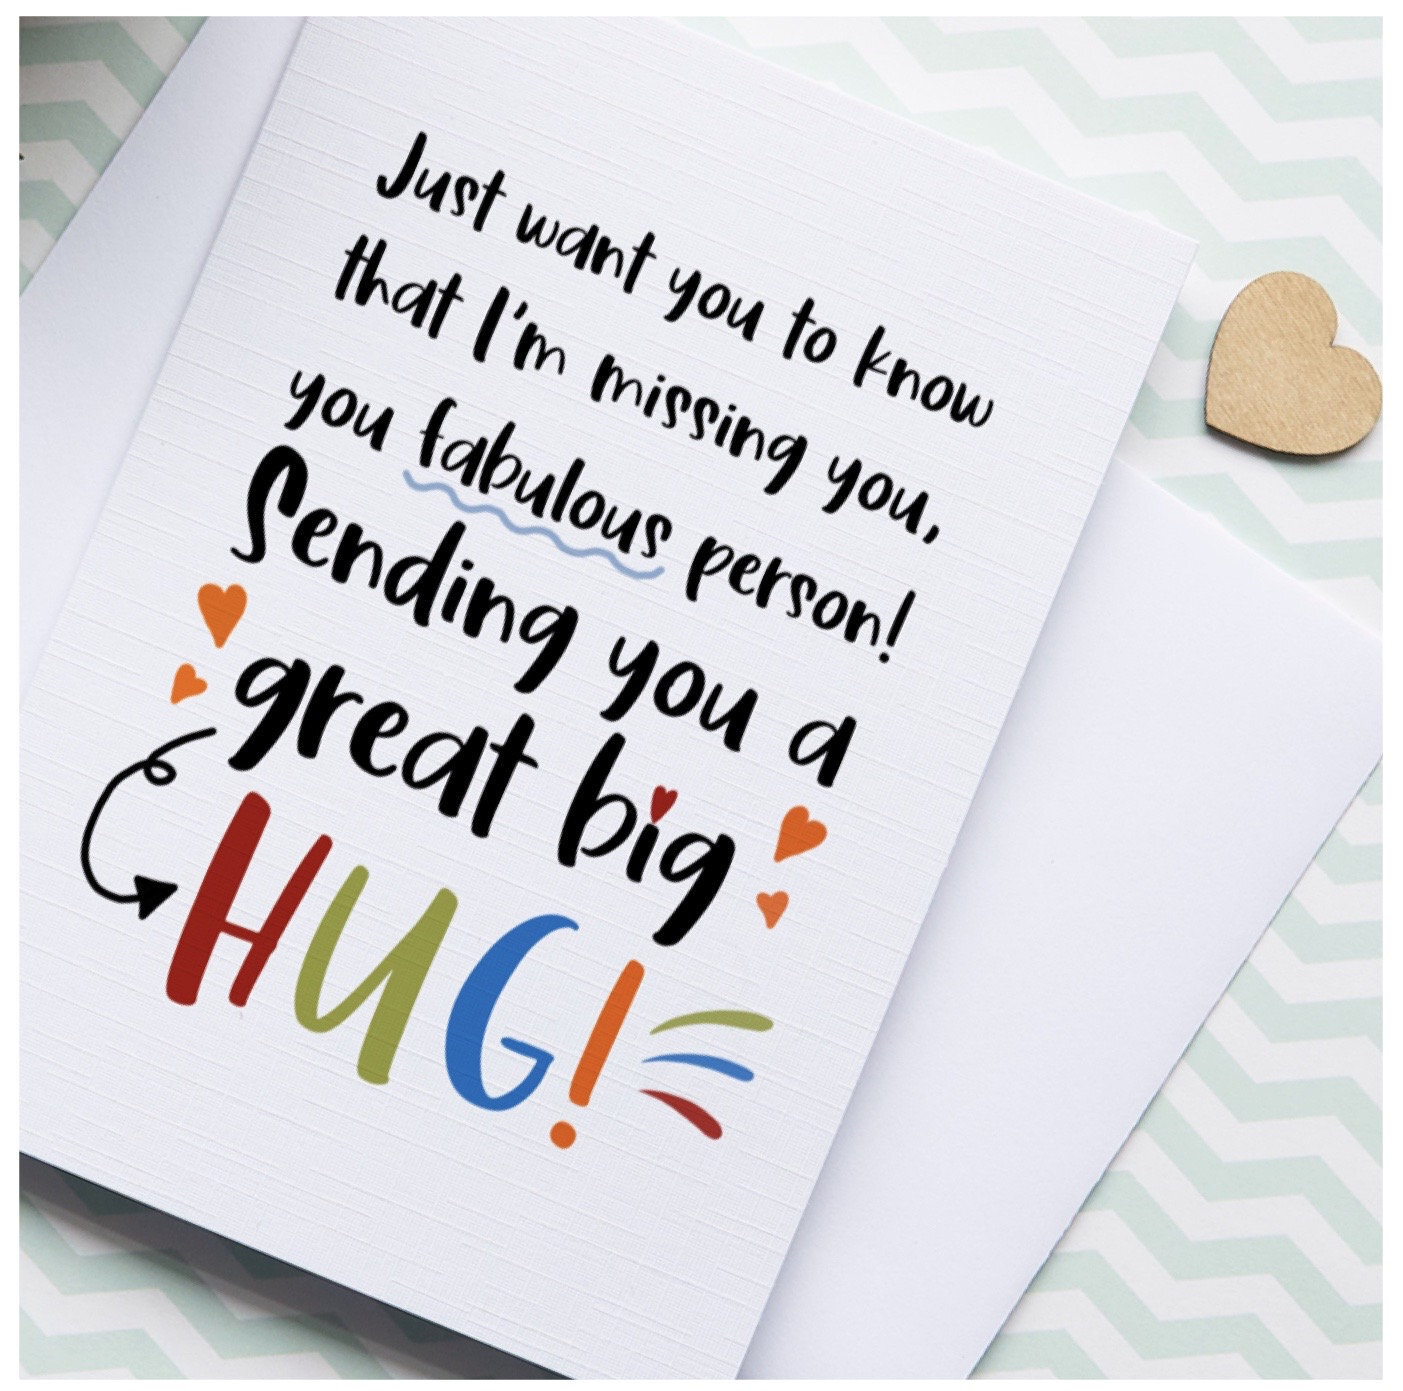 Just want you to know
that I'm missing you,
you fabulous person!
Sending you a
great big
HUG!